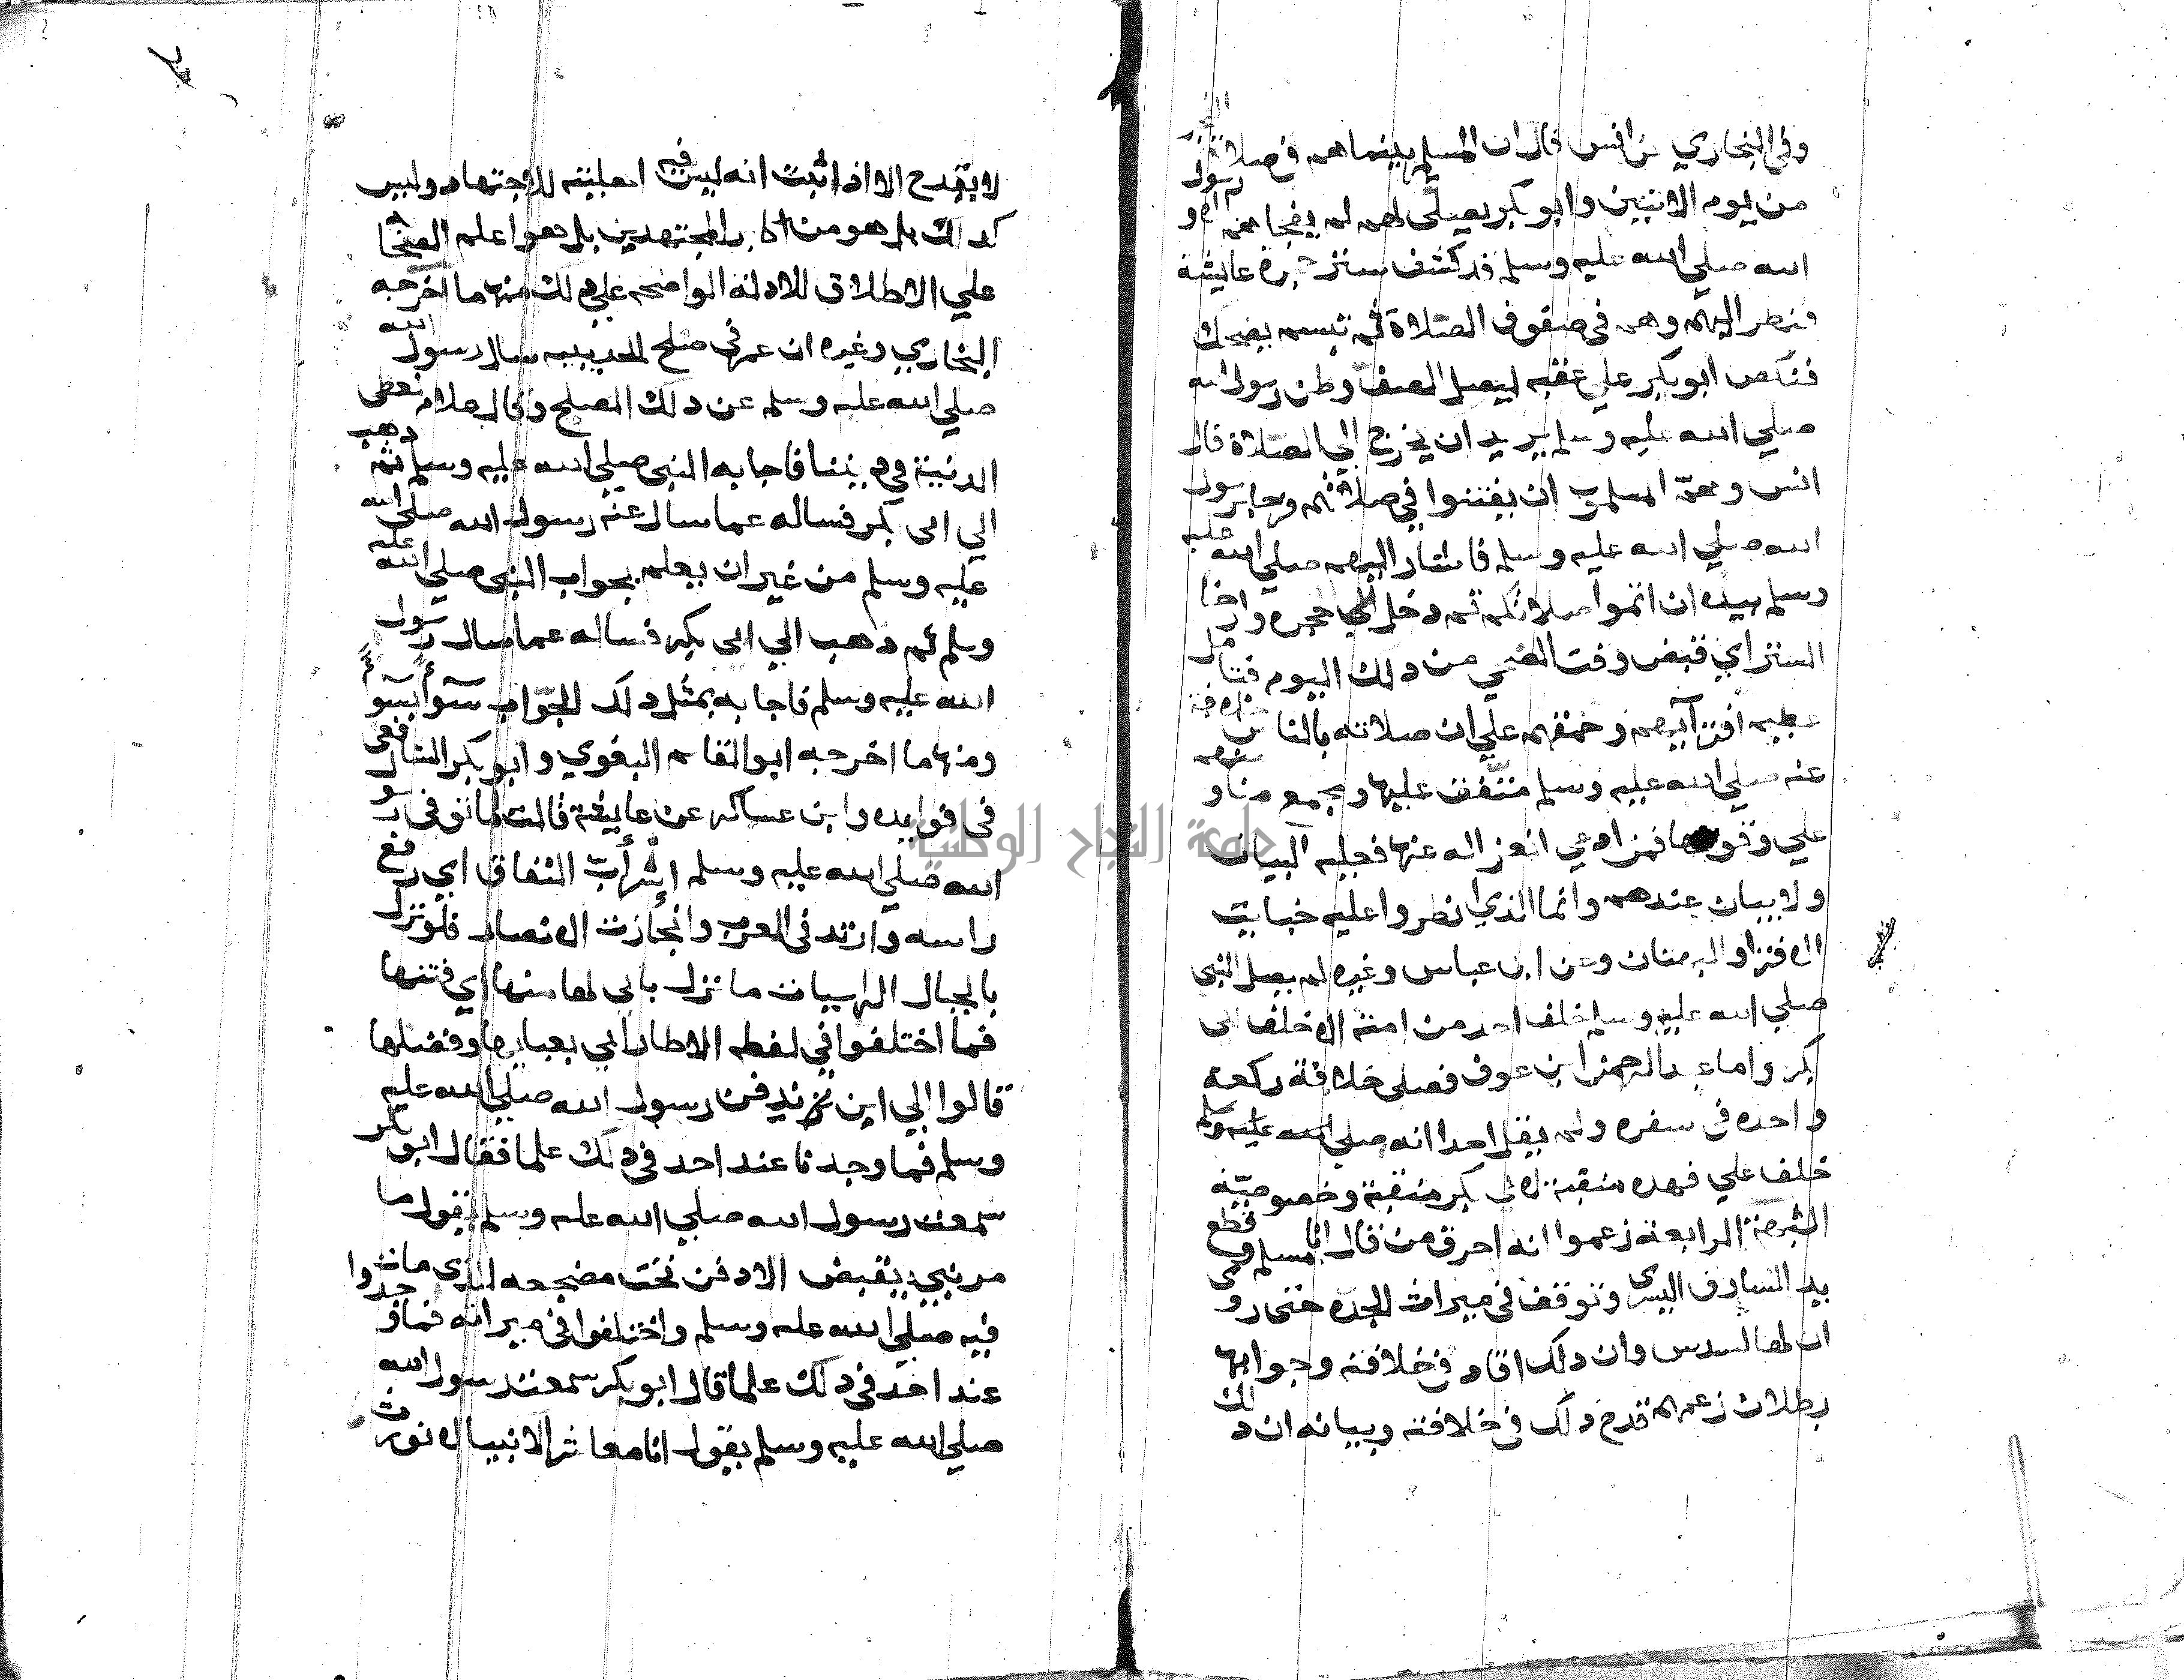 وفي البخاري عن انس قال ان المسلمين بينما هم في صلاة الفجر
من يوم الاثنين وابو بكر يصلي لهم لم يفجاهم الا رسول
الله صلي الله عليه وسلم قد كشف ستر حجرة عايشة
فنطر اليهم وهم في صفوف الصلاة ثم تبسم يضحك
فنكص ابو بكر علي عقبه ليصل الصف وطن رسول الله
صلي الله عليه وسلم يريد ان يخرج الي الصلاة قال
انس وهم المسلمون ان يفتتنوا في صلاتهم فرحا برسول
الله صلي الله عليه وسلم فاشار اليهم صلي الله عليه
وسلم بيده ان اتموا صلاتكم ثم دخل الي حجره وارخا
الستر اي قبض وقت الضحي من ذلك اليوم فتامل
عطيم افترآيهم وحمقهم علي ان صلاته بالناس خلافة
عنه صلي الله عليه وسلم متفق عليها ومجمع منا ومنهم
علي وقوعها فمن ادعي انعزاله عنها فعليه البيان
ولا بيان عندهم وانما الذي انطروا عليه خبايث
الافترا والبهتان وعن ابن عباس وغيره لم يصل النبي
صلي الله عليه وسلم خلف احد من امته الا خلف ابي
بكر واما عبد الرحمن ابن عوف فصلي خلافة ركعة
واحده في سفره ولم يقل احدا انه صلي الله عليه وسلم
خلف علي فهده منقبة لابي بكر منقبة وخصوصية
الشبهة الرابعة زعموا انه احرق من قال انا مسلم وقطع
يد السارق اليسري وتوقف في ميراث الجده حتي روي
ان لها السدس وان دلك اقادح في خلافته وجوابها
بطلان زعمهم قدح دلك في خلافته وبيانه ان دلك
لا يقدح الا اذا ثبت انه ليس فيه اهلية للاجتهاد وليس
كدلك بل هو من اكابر المجتهدين بل هو اعلم الصحابة
علي الاطلاق للادلة الواضحه علي دلك منها ما اخرجه
البخاري وغيره ان عمر في صلح الحديبيه سال رسول الله
صلي الله عليه وسلم عن دلك الصلح وقال علام نعطي
الدنية في ديننا فاجابه النبي صلي الله عليه وسلم ثم دهب
الي ابي بكر فساله عما سال عنه رسول الله صلي الله
عليه وسلم من غير ان يعلم بجواب النبي صلي الله عليه
وسلم ثم دهب الي ابي بكر فساله عما سال رسول
الله عليه وسلم فاجابه بمثل دلك الجواب سوآ بسوآ
ومنها ما اخرجه ابو القاسم البغوي وابو بكر الشافعي
في فوايده وابن عساكر عن عايشة قالت لما توفي رسول
الله صلي الله عليه وسلم اشرأب النفاق اي رفع
راسه وارتد في العرب وانحازت الانصار فلو نزل
بالجبال الراسيات ما نزل بابي لها منها اي فتتها
فما اختلفوا في لفطه الا طار ابي بعبايها وفضلها
قالوا الي اين ندفن رسول الله صلي الله عليه
وسلم فما وجدنا عند احد في دلك علما فقال ابو بكر
سمعت رسول الله صلي الله عليه وسلم يقول ما
من نبي يقبض الا دفن تحت مضجعه الذي مات
فيه صلي الله عليه وسلم واختلفوا في ميراثه فما وجدوا
عند احد في دلك علما قال ابو بكر سمعت رسول الله
صلي الله عليه وسلم يقول انا معاشر الانبيا لا نورث
جامعة النجاح الوطنية